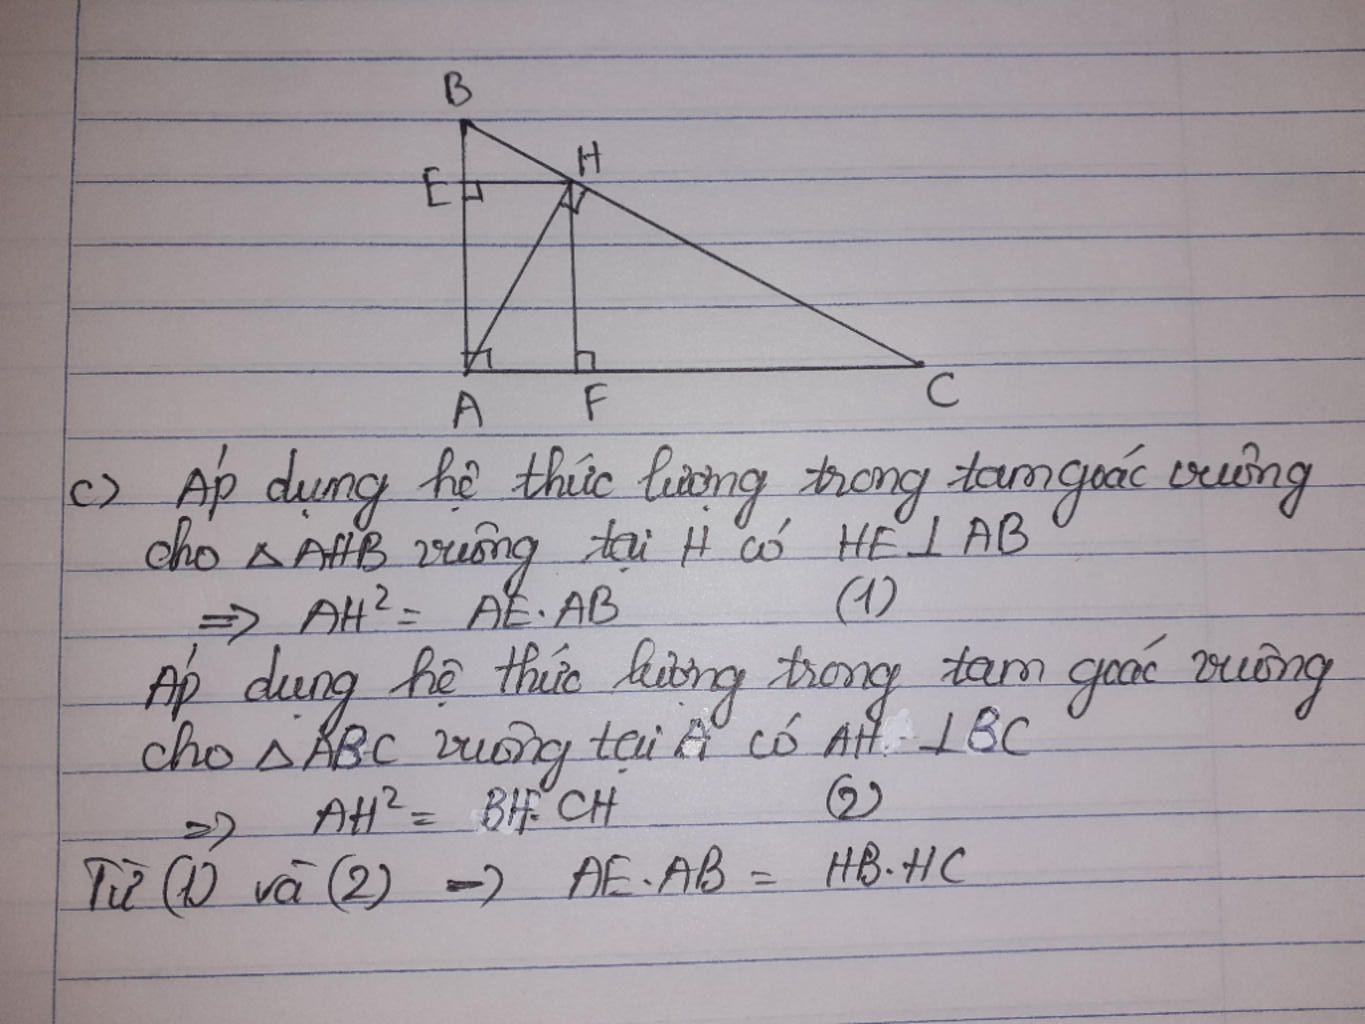 B
H
E
A
F
C
c) Áp dụng hệ thức lượng trong tam goác vuông
cho △ AHB vuông tại H có HE ⊥ AB
=> AH² = AE . AB (1)
Áp dụng hệ thức lượng trong tam goác vuông
cho △ ABC vuông tại A có AH ⊥ BC
=> AH² = BH . CH (2)
Từ (1) và (2) => AE . AB = HB . HC